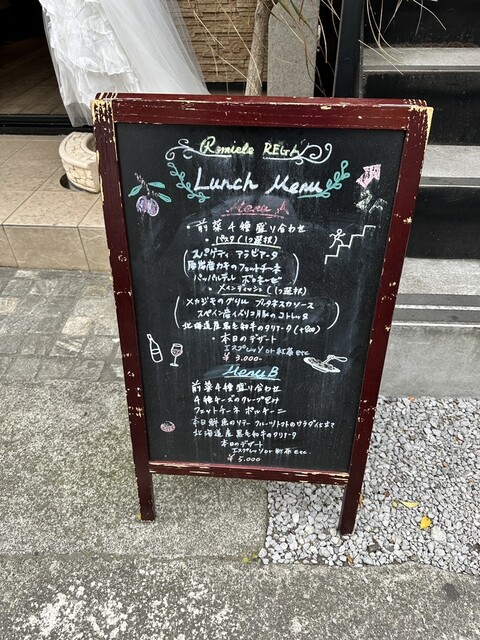 Lunch Menu
Menu A
・前菜4種盛り合わせ
・パスタ(1つ選択)
スパゲティ アラビアータ
カキのフェットチーネ
パッパルデレ ボロネーゼ
・メインディッシュ(1つ選択)
メカジキのグリル プッタネスカソース
スペイン産イベリコ豚のコトレッタ
北海道産黒毛和牛のタリアータ(+800)
・本日のデザート
エスプレッソor紅茶etc
¥3.000-
Menu B
前菜4種盛り合わせ
4種チーズのクレープ包み
フェットチーネ ポルチーニ
本日鮮魚のソテー フルーツトマトのサラダ仕立て
北海道産黒毛和牛のタリアータ
本日のデザート
エスプレッソor紅茶etc
¥5.000